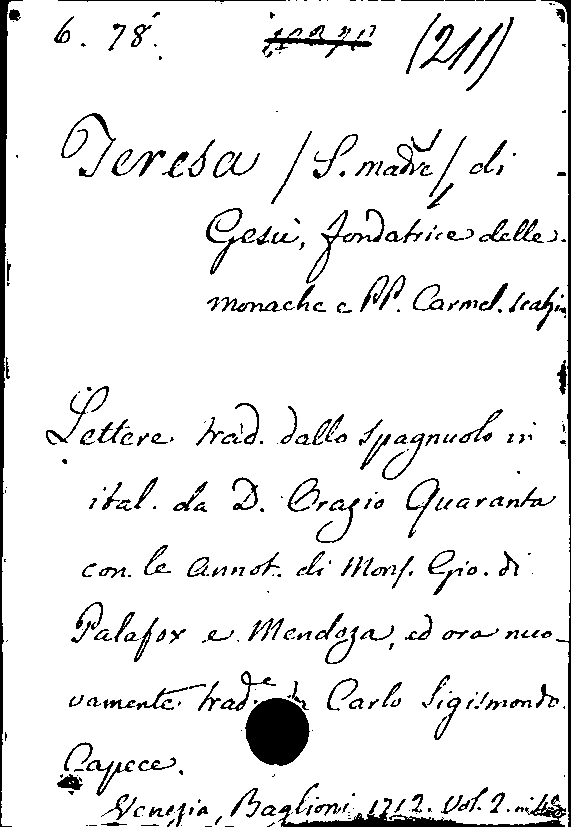 6. 78. (211)
Teresa /S. madre/ di
Gesù, fondatrice delle
monache e PP. Carmel. scalzi
Lettere trad. dallo spagnuolo in
ital. da D. Orazio Quaranta
con le annot. di Mons. Gio. di
Palafox e Mendoza, ed ora nuo-
vamente trad.e da Carlo Sigismondo
Capece.
Venezia, Baglioni, 1712. Vol. 2. in